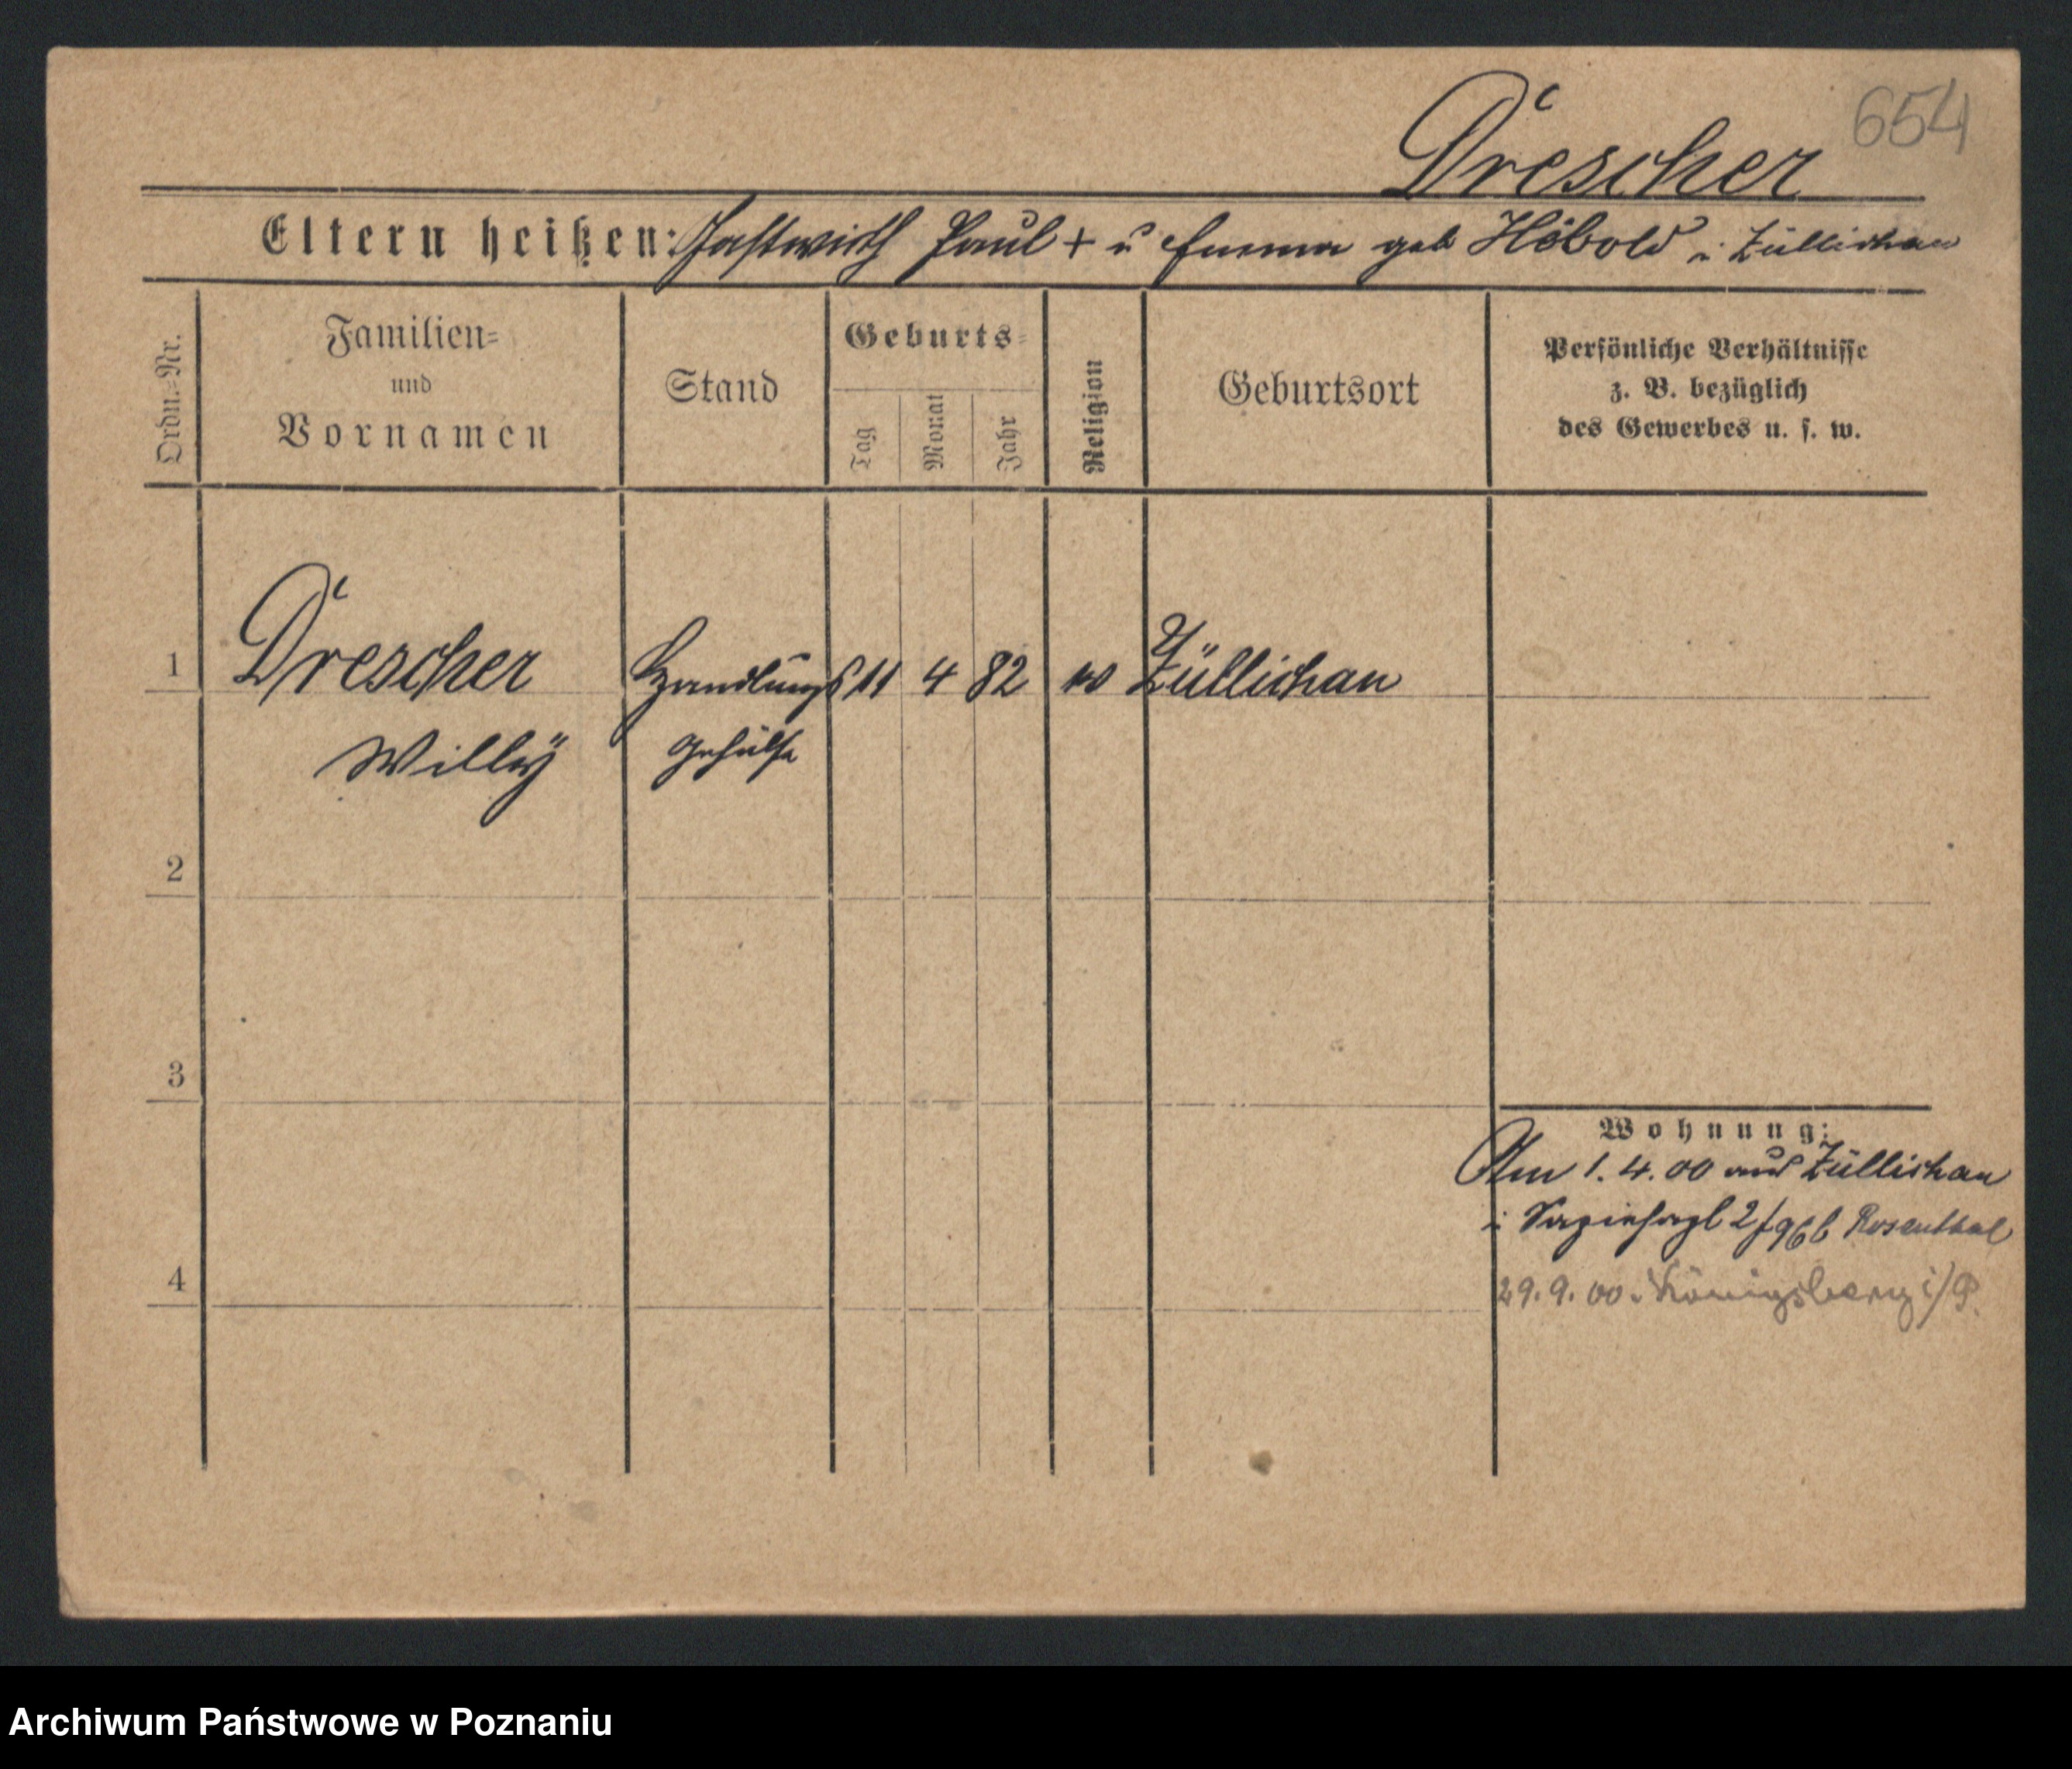 654
Drescher
Eltern heißen: Gastwirth Paul + u Emma geb Höbold i Züllichau
Ordn.=Nr.
Familien=
und
Vornamen
Stand
Geburts=
Tag
Monat
Jahr
Religion
Geburtsort
Persönliche Verhältnisse
z. B. bezüglich
des Gewerbes u. s. w.
1 Drescher Handlungs 11 4 82 Züllichau
Willÿ Gehülfe
2
3
Wohnung:
Am 1. 4. 00 aus Züllichau
i Sapiehapl 2 Rosenthal
4
29. 9. 00. Königsberg i/P.
Archiwum Państwowe w Poznaniu